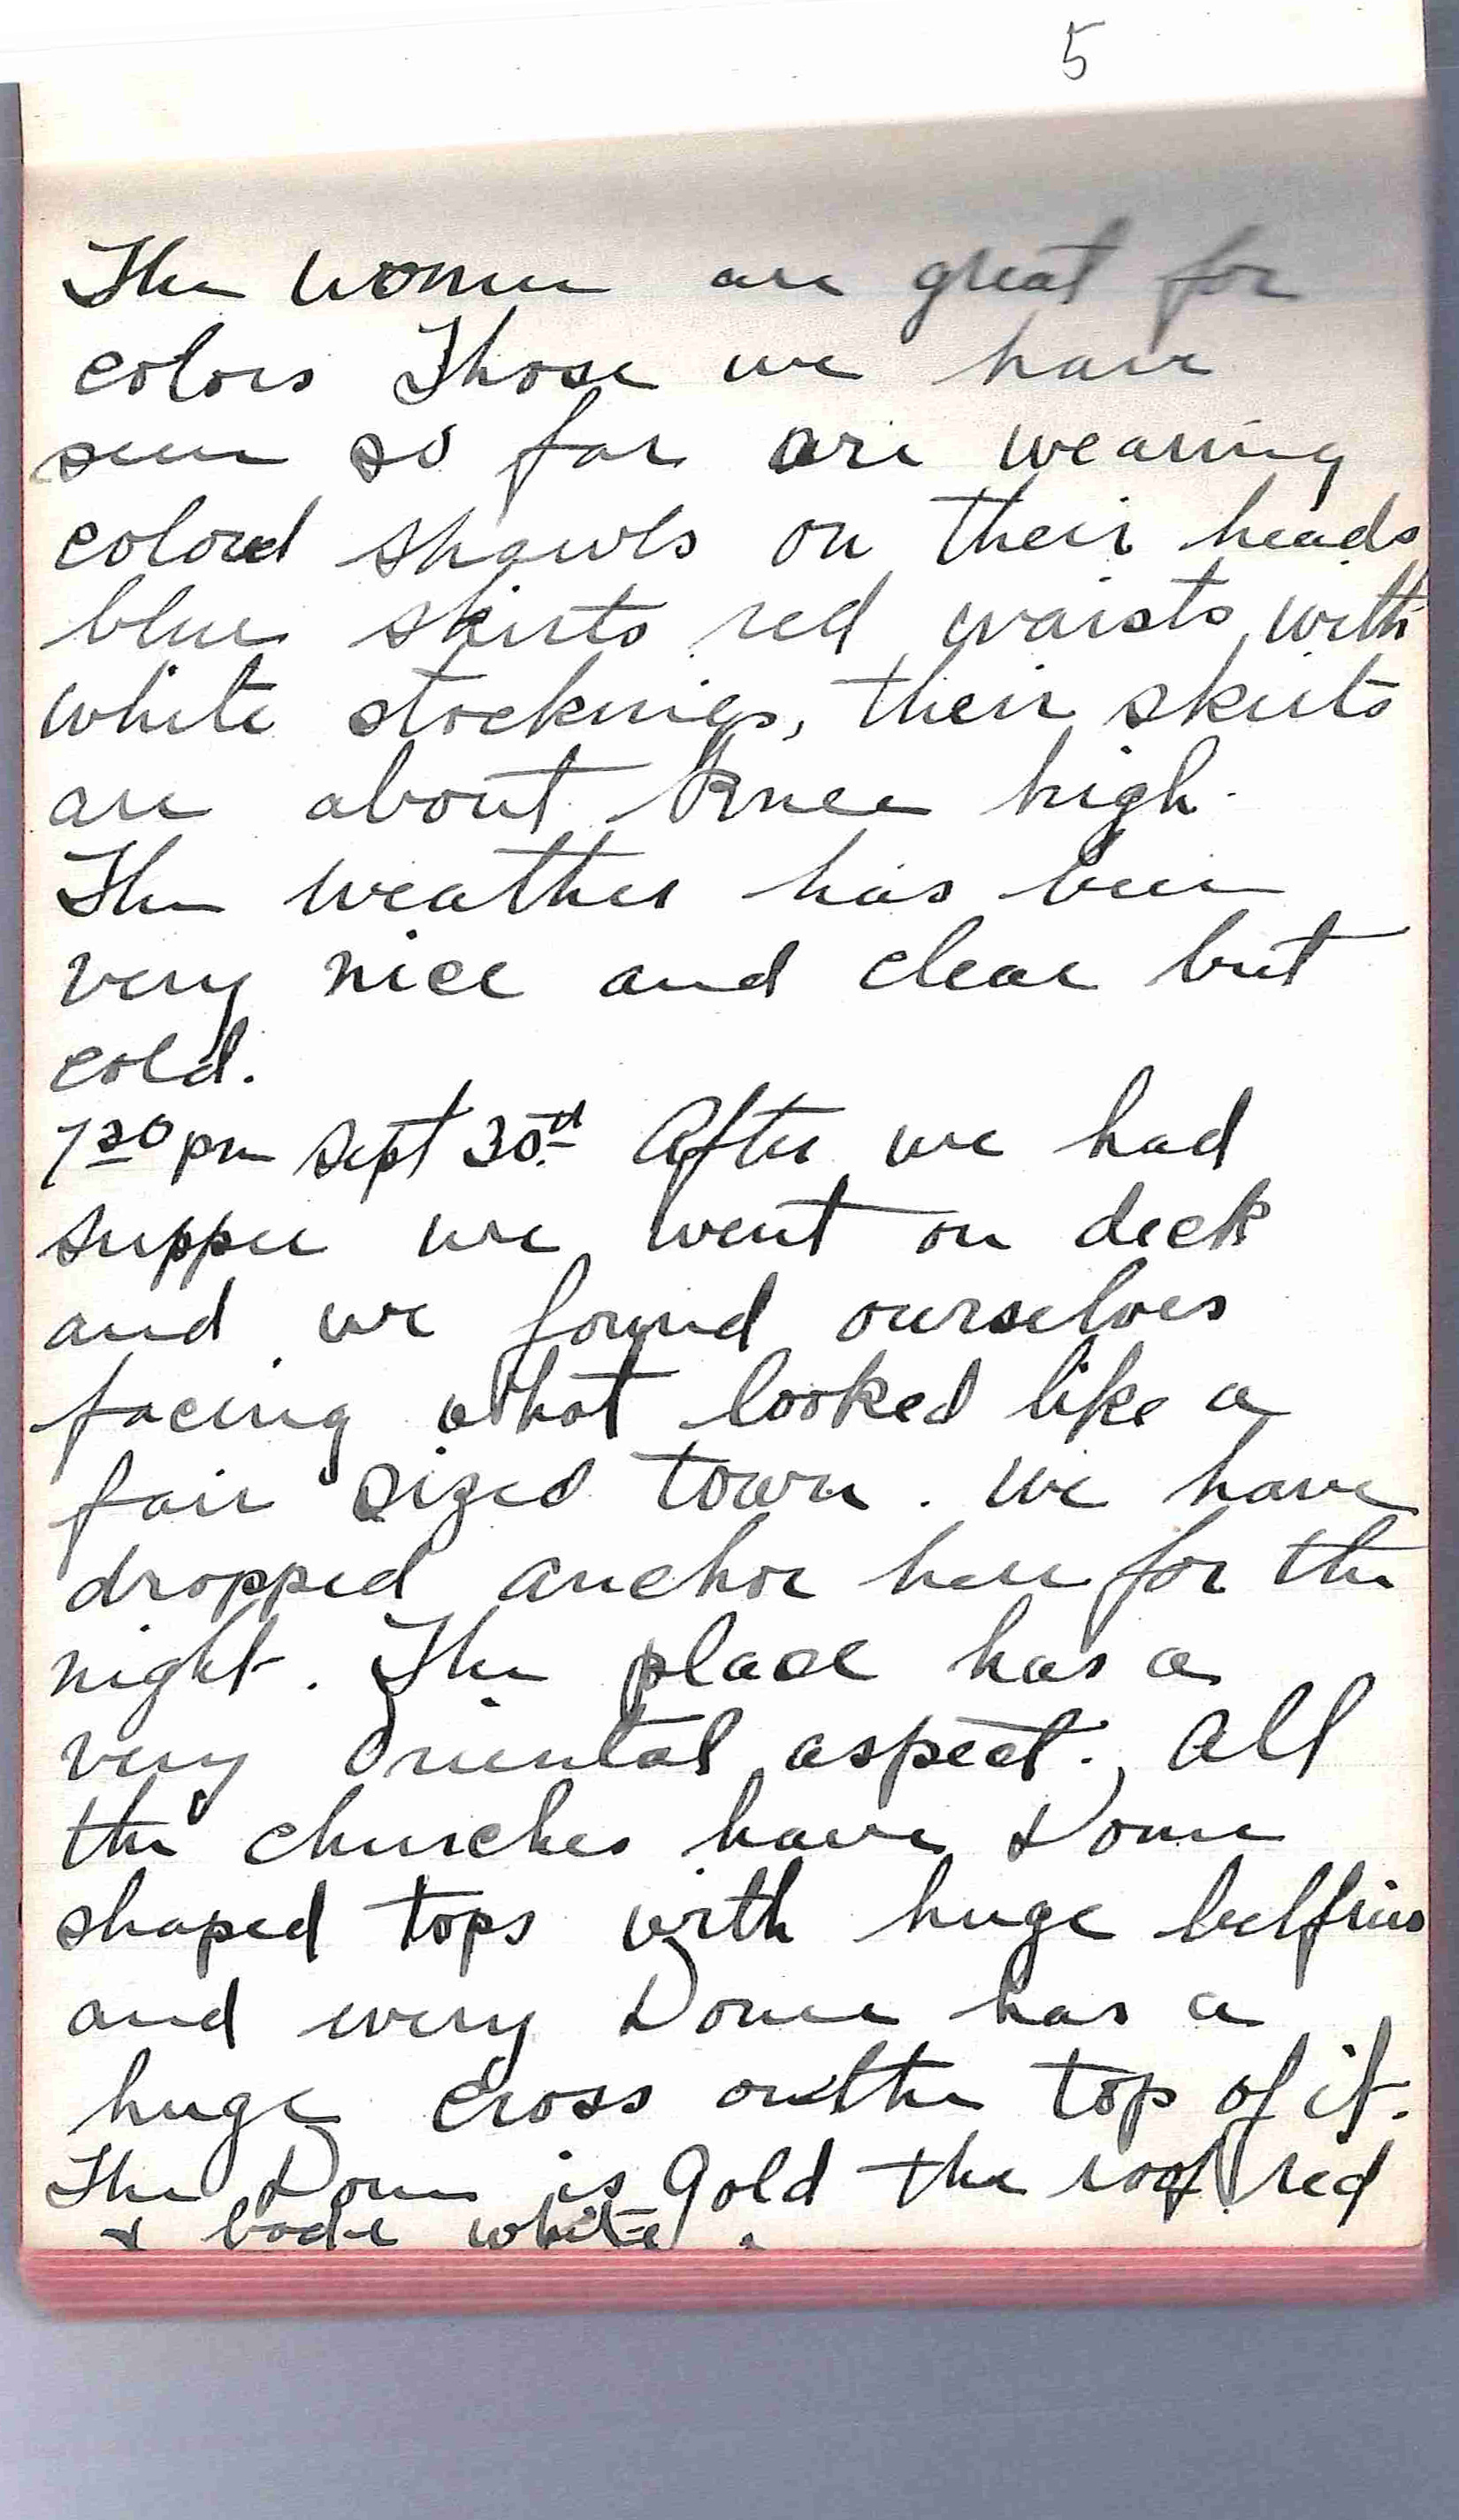 5
The women are great for
colors Those we have
seen so far are wearing
colored shawls on their heads
blue skirts red waists, with
white stockings, their skirts
are about knee high.
The weather has been
very nice and clear but
cold.
7 30 pm Sept 30th. After we had
supper we went on deck
and we found ourselves
facing what looked like a
fair sized town. We have
dropped anchor here for the
night. The place has a
very Oriental aspect. All
the churches have Dome
shaped tops with huge belfries
and every Dome has a
huge cross on the top of it.
The Dome is Gold the roof red
& bodie white.